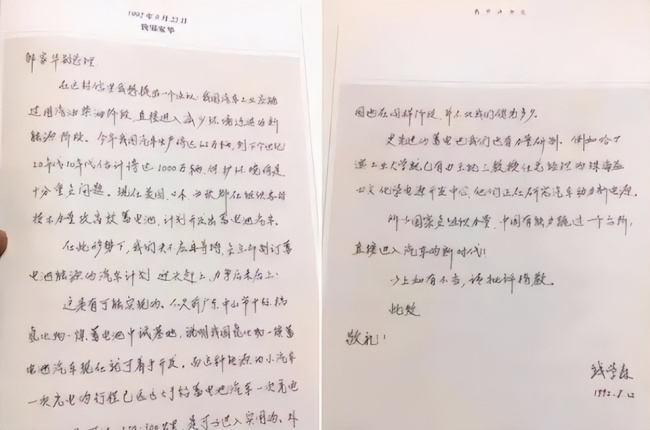 1992年8月22日
致邹家华
邹家华副总理：
在这封信里我想提出一个建议：我国汽车工业应跳
过用汽油柴油阶段，直接进入减少环境污染的新
能源阶段。今年我国汽车产量将达
20年代10年代估计将达1000万辆，保护环境将是
十分重大问题。现在美国、日本、西欧都在组织各自
技术力量攻高效蓄电池，计划开发出蓄电池汽车。
在此形势下，我们决不应再等待，要立即制订蓄
电池能源的汽车计划，迎头赶上，力争后来居上！
这是有可能实现的。不久前广东中山市
氢化物-镍蓄电池中试基地，说明我国氢化物-镍蓄
电池汽车现在就可着手开发。而这种能源的小汽车
一次充电的行程已远大于铅蓄电池汽车一次充电
公里，是可以进入实用的。外
国也在同样阶段，并不比我们领先多少。
更先进的蓄电池我们也有力量研制，例如哈尔
滨工业大学就已有
化学电源开发中心，他们正在研究汽车动力新电源。
所以国家要组织力量，中国有能力跳过一个台阶，
直接进入汽车的新时代！
以上如有不当，请批评指教。
此致
敬礼！
钱学森
1992.8.22